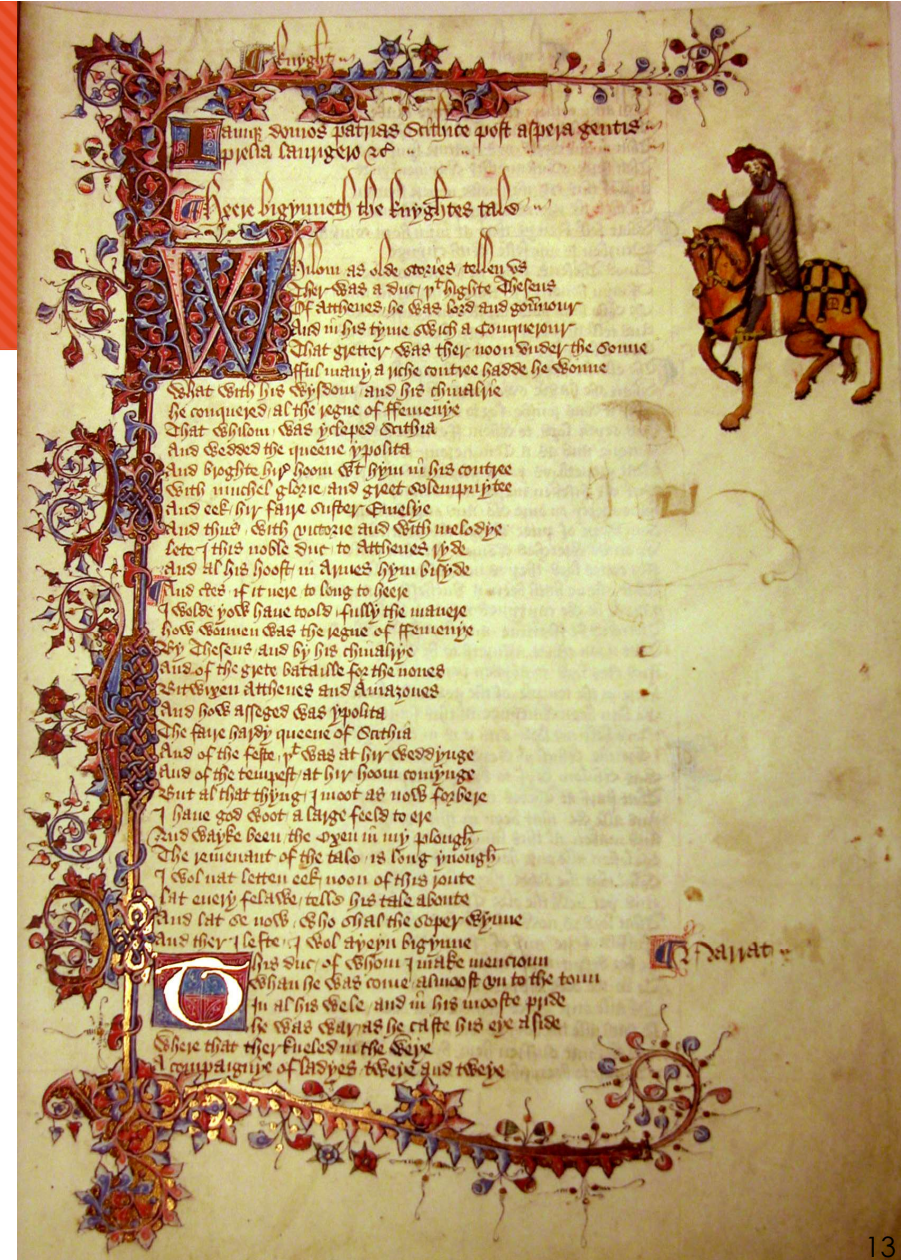 ¶ Knyght
Iamque domos patrias Scithice post aspera gentis
prelia laurigero &c
¶ Heere bigynneth the knyghtes tale
Whilom as olde stories tellen vs
Ther was a duc þt highte Theseus
Of Atthenes he was lord and gouernour
And in his tyme swich a Conquerour
That gretter was ther noon vnder the sonne
fful many a riche contree hadde he wonne
What with his wysdom and his chiualrie
he conquered al the regne of ffemenye
That whilom was ycleped Scithia
And wedded the queene ypolita
And broghte hir hoom wt hym in his contree
With muchel glorie and greet solempnytee
And eek hir faire suster Emelye
And thus with victorie and with melodye
lete I this noble duc to Atthenes ryde
And al his hoost in Armes hym bisyde
¶ And certes if it nere to long to heere
I wolde yow haue toold fully the manere
how wonnen was the regne of ffemenye
By Theseus and by his chiualrye
And of the grete bataille for the nones
Bitwixen Atthenes and Amazones
And how asseged was ypolita
The faire hardy queene of Scithia
And of the feste þt was at hir weddynge
And of the tempest at hir hoom comynge
But al that thyng I moot as now forbere
I haue god woot a large feeld to ere
And wayke been the Oxen in my plough
The remenant of the tale is long ynough
I wol nat letten eek noon of this route
lat euery felawe telle his tale aboute
And lat se now who shal the soper wynne
And ther I lefte I wol ayeyn bigynne
This duc of whom I make mencioun
¶ Narrat
Whan he was come almoost vn to the toun
In al his wele and in his mooste pride
he was war as he caste his eye aside
Where that ther kneled in the weye
A compaignye of ladyes tweye and tweye
13